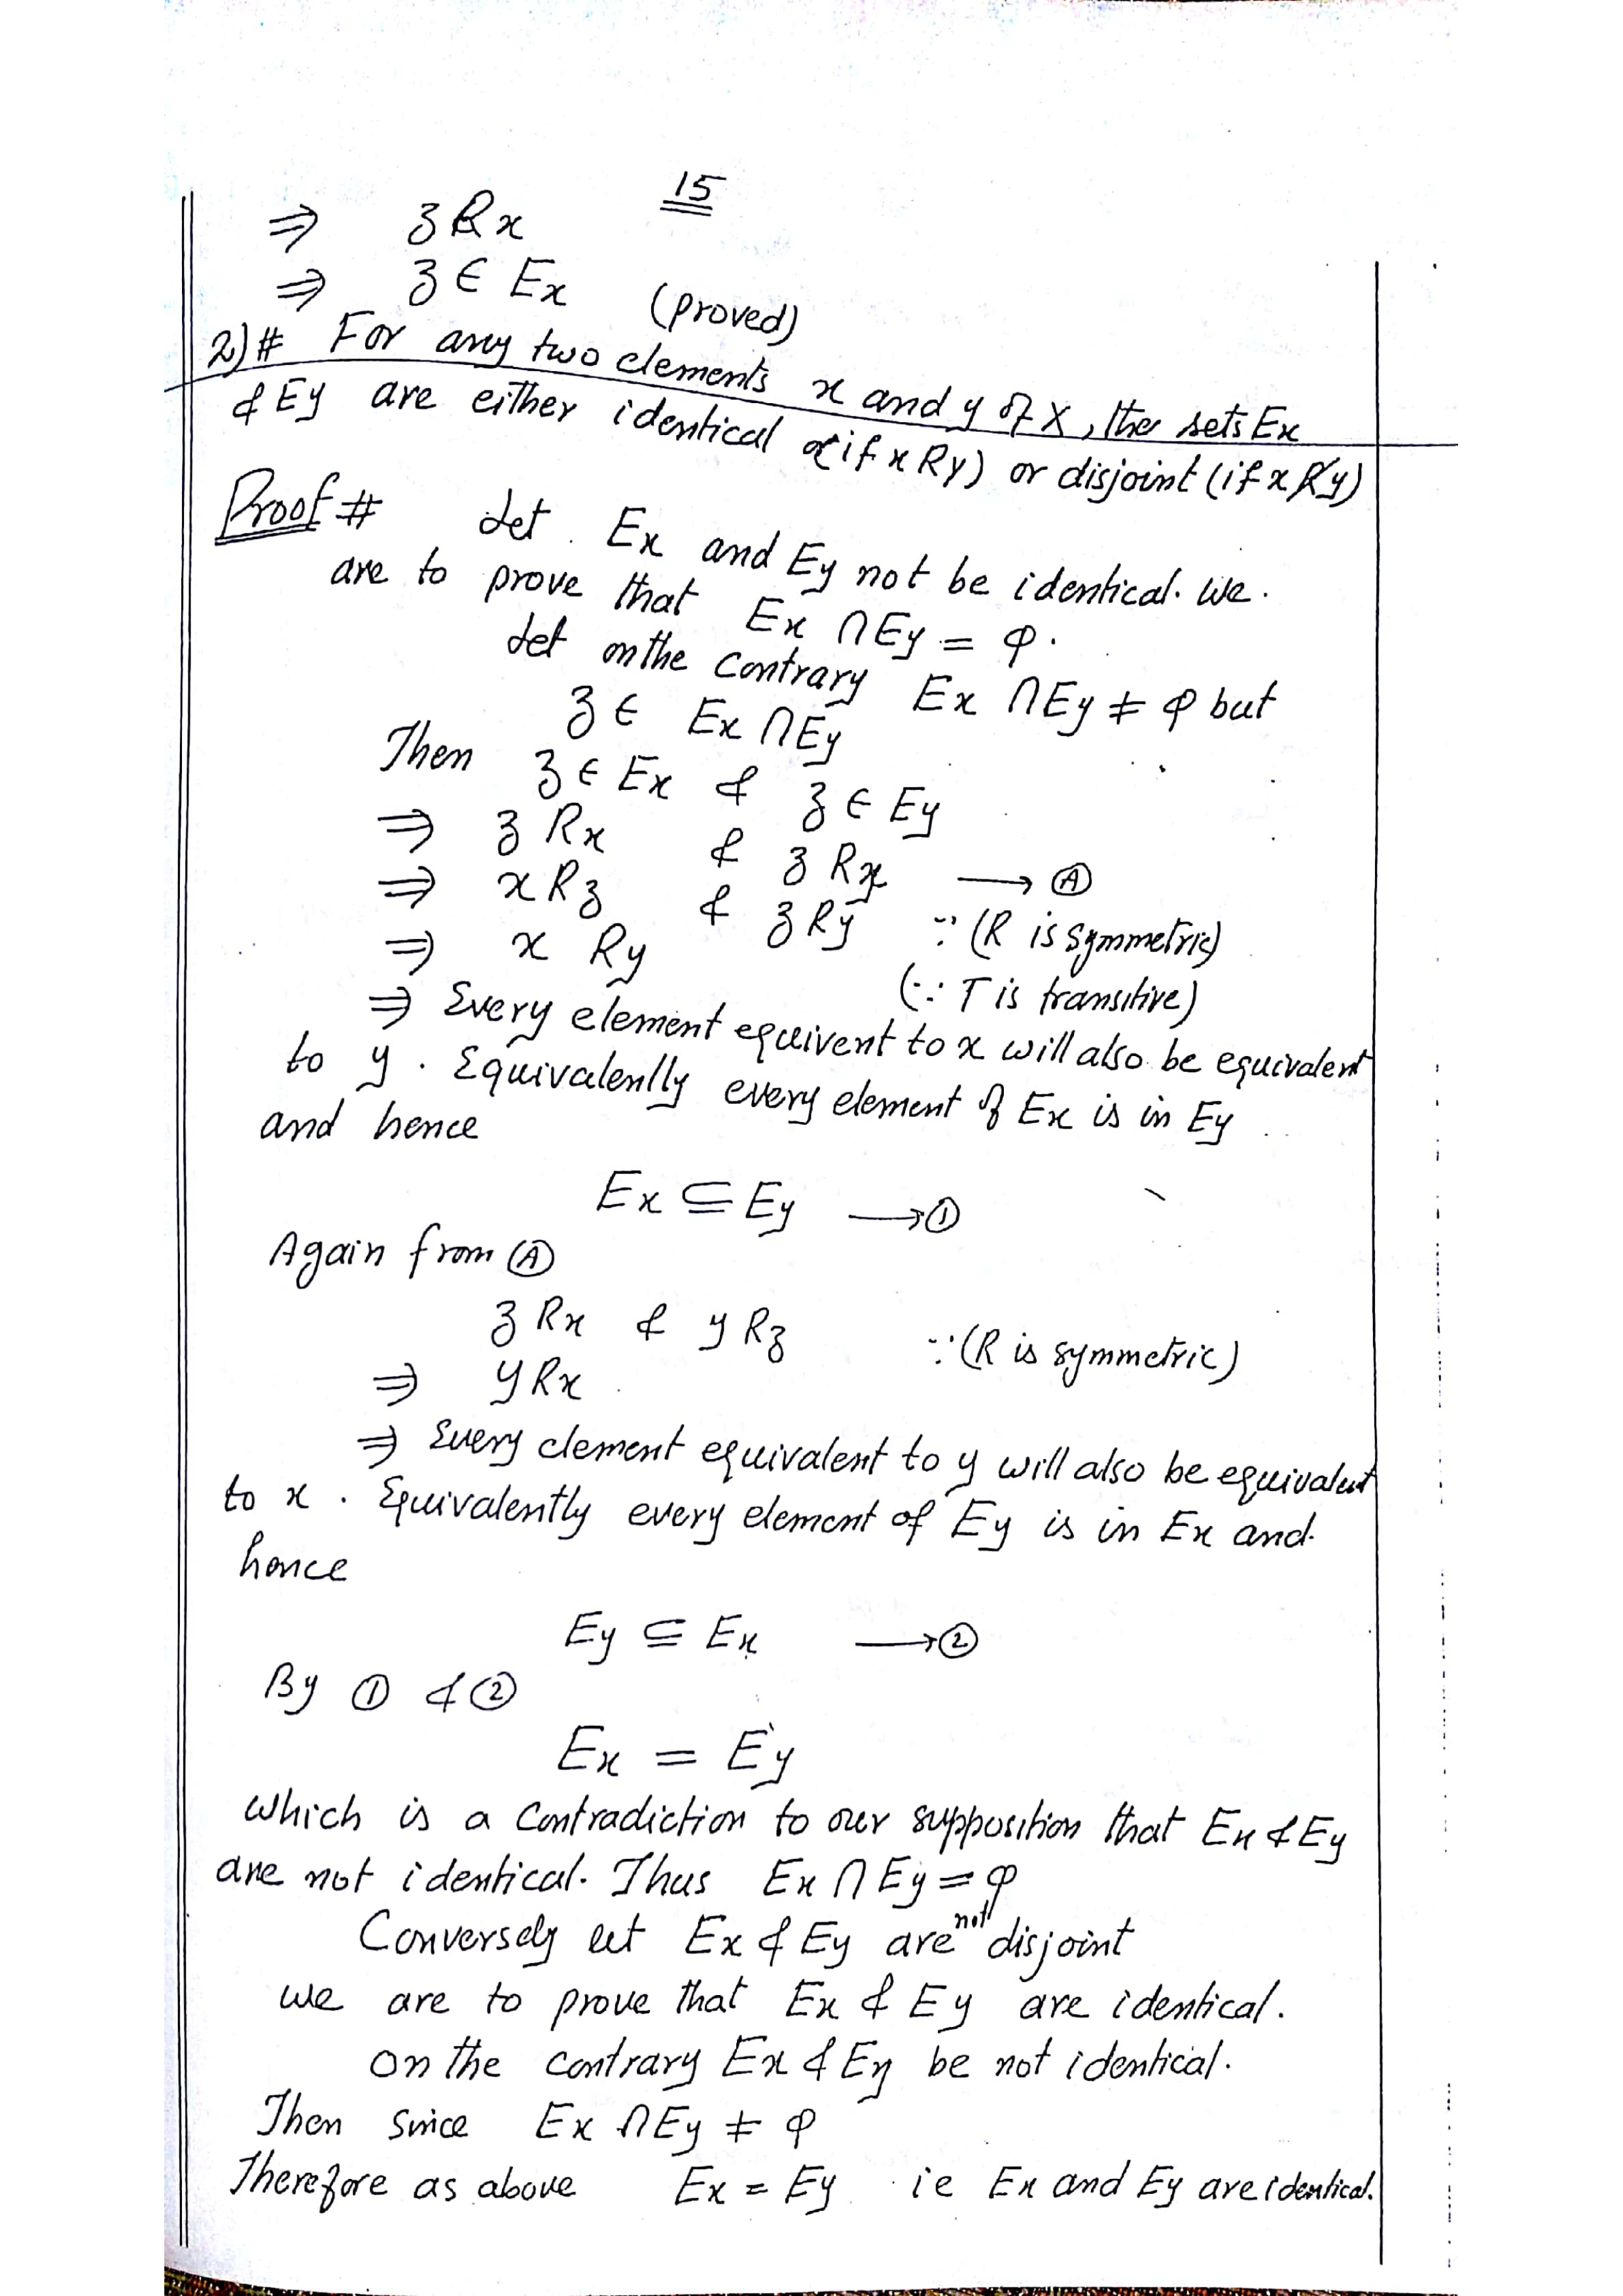 15
⇒ z R x
⇒ z ∈ Ex (proved)
2) # For any two elements x and y of X, the sets Ex
& Ey are either identical (if x Ry) or disjoint (if x R̸ y)
Proof # Let Ex and Ey not be identical. We
are to prove that Ex ∩ Ey = φ.
Let on the contrary Ex ∩ Ey ≠ φ but
z ∈ Ex ∩ Ey
Then z ∈ Ex & z ∈ Ey
⇒ z Rx & z Ry → Ⓐ
⇒ x Rz & z Ry ∵ (R is symmetric)
⇒ x Ry (∵ T is transitive)
⇒ Every element equivent to x will also be equivalent
to y . Equivalently every element of Ex is in Ey
and hence
Ex ⊆ Ey → ①
Again from Ⓐ
z Rx & y Rz ∵ (R is symmetric)
⇒ y Rx
⇒ Every element equivalent to y will also be equivalent
to x . Equivalently every element of Ey is in Ex and
hence
Ey ⊆ Ex → ②
By ① & ②
Ex = Ey
which is a contradiction to our supposition that Ex & Ey
are not identical. Thus Ex ∩ Ey = φ
Conversely let Ex & Ey are not disjoint
we are to prove that Ex & Ey are identical.
on the contrary Ex & Ey be not identical.
Then since Ex ∩ Ey ≠ φ
Therefore as above Ex = Ey ie Ex and Ey are identical.